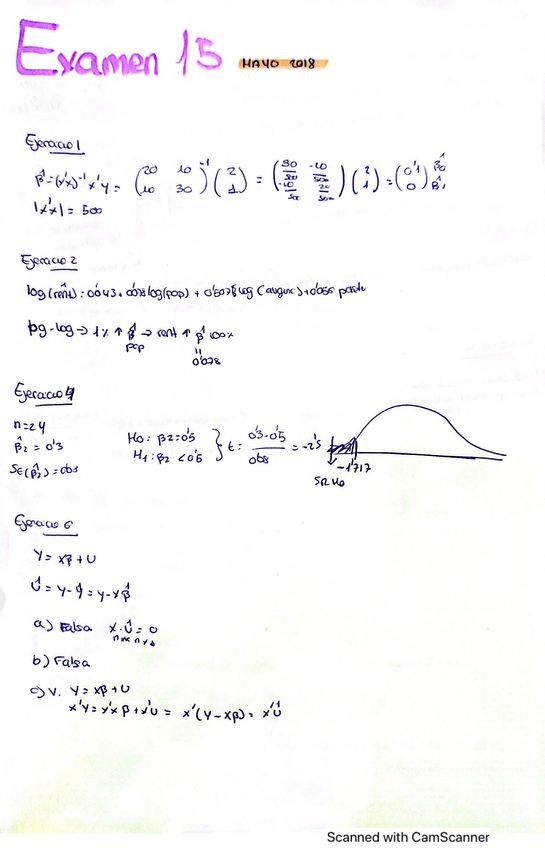 Examen 15 MAYO 2018
Ejercicio 1
β̂ = (x'x)⁻¹ x'y = (20 10 / 10 30)⁻¹ (2 / 1) = (30/500 -10/500 / -10/500 20/500) (2 / 1) = (0'1 / 0) β̂0 β̂1
|x'x| = 500
Ejercicio 2
log(rent): 0'043 + 0'078 log(pop) + 0'5078 log(avginc) + 0'056 pctstu
log-log → 1% ↑ β̂ pop → rent ↑ β̂ 100%
0'078
Ejercicio 4
n=24
β̂2 = 0'3
SE(β̂2) =
H0: β2=0'5
H1: β2 < 0'5
t = (0'3-0'5)/0'08 = -2'5
-1'717
SR H0
Ejercicio 6
Y = Xβ + U
Û = y - ŷ = y - xβ̂
a) Falsa x·Û = 0
b) Falsa
c) V. Y = Xβ + U
x'Y = x'xβ + x'U = x'(Y - Xβ) = x'Û
Scanned with CamScanner